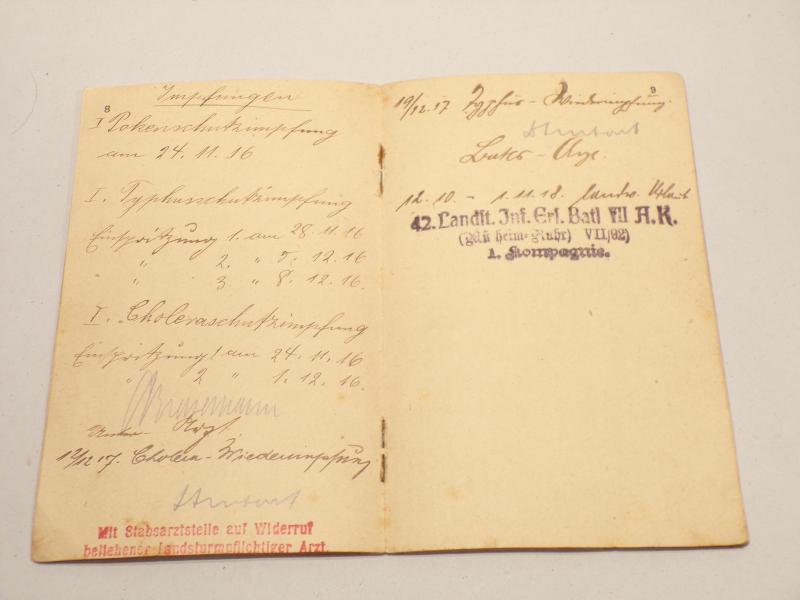 8
Impfungen
I Pokenschutzimpfung
am 24. 11. 16
I. Typhusschutzimpfung
Einspritzung 1. am 28. 11. 16
" 2. " 5. 12. 16
" 3. " 8. 12. 16.
I. Choleraschutzimpfung
Einspritzung 1 am 24. 11. 16
" 2 " 1. 12. 16.
Arzt
12/12 17. Cholera-Wiederimpfung
Mit Stabsarztstelle auf Widerruf
beliehener landsturmpflichtiger Arzt.
9
19/12.17 Typhus-Wiederimpfung.
12. 10. - 1. 11. 18. landw. Urlaub
42. Landst. Inf. Ers. Batl VII A.K.
VII/92)
1. Kompagnie.